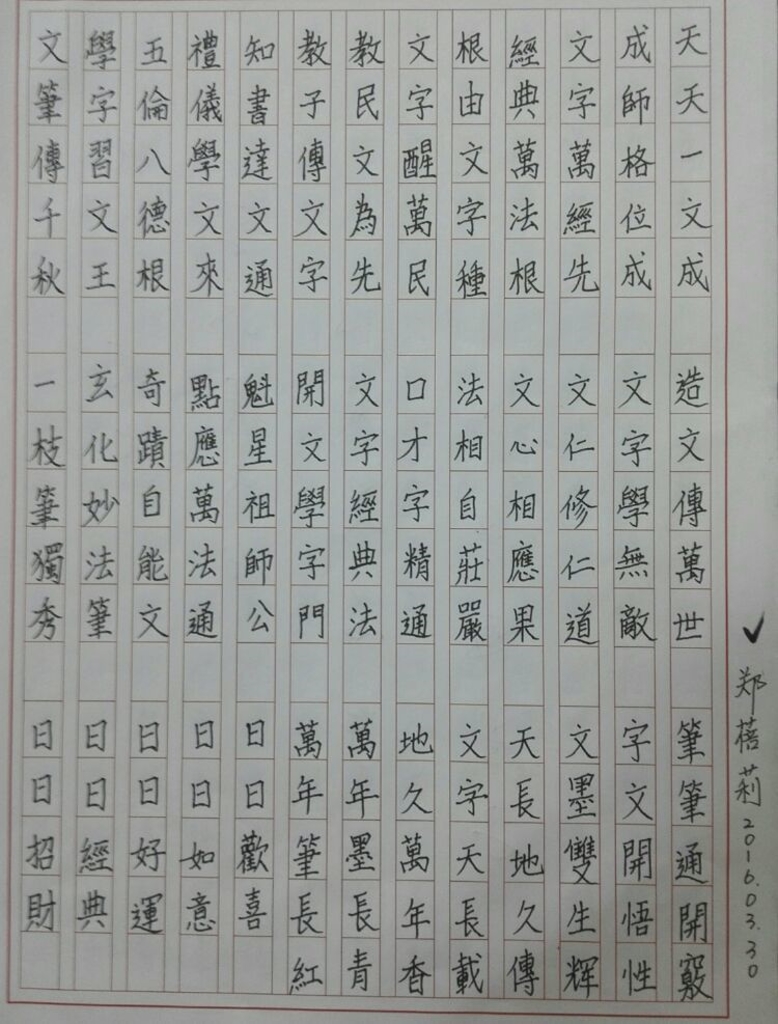 天天一文成 造文傳萬世 筆筆通開竅
成師格位成 文字學無敵 字文開悟性
文字萬經先 文仁修仁道 文墨雙生輝
經典萬法根 文心相應果 天長地久傳
根由文字種 法相自莊嚴 文字天長載
文字醒萬民 口才字精通 地久萬年香
教民文為先 文字經典法 萬年墨長青
教子傳文字 開文學字門 萬年筆長紅
知書達文通 魁星祖師公 日日歡喜
禮儀學文來 點應萬法通 日日如意
五倫八德根 奇蹟自能文 日日好運
學字習文王 玄化妙法筆 日日經典
文筆傳千秋 一枝筆獨秀 日日招財
郑蓓莉2016.03.30